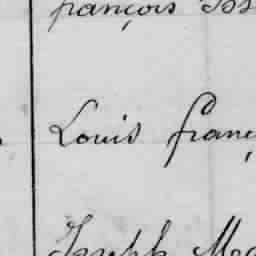 françois
Louis franç
Joseph